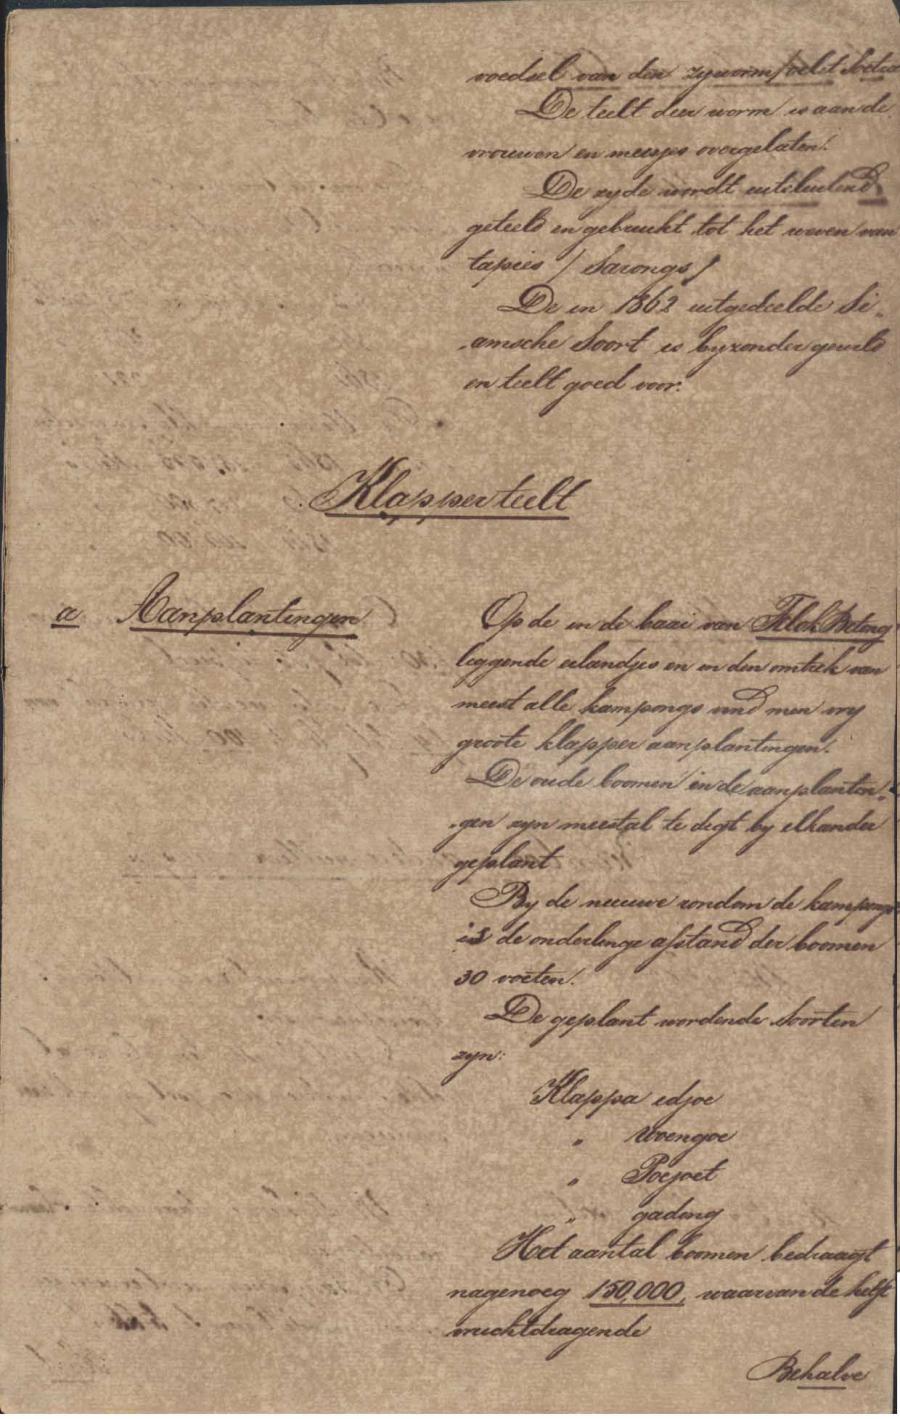 voedsel van den zyworm
De teelt dier worm is aan de
vrouwen en meisjes overgelaten.
De zyde wordt uitsluitend
geteeld en gebruikt tot het weven van
tapies / Sarongs /
De in 1862 uitgedeelde Si„
„amsche Soort is byzonder gewild
en teelt goed voor.
Klapperteelt
a Aanplantingen
Op de in de baai van Telok Betong
leggende eilandjes en in den omtrek van
meest alle kampongs vind men vry
groote klapper aanplantingen.
De oude boomen in de aanplantin„
„gen zyn meestal te digt by elkander
geplant
By de nieuwe rondom de kampongs
is de onderlinge afstand der boomen
30 voeten.
De geplant wordende Soorten
zyn:
Klappa edjoe
„ woengoe
„ Poejoet
„ gading
Het aantal boomen bedraagt
nagenoeg 150,000, waarvan de helft
vruchtdragende
Behalve